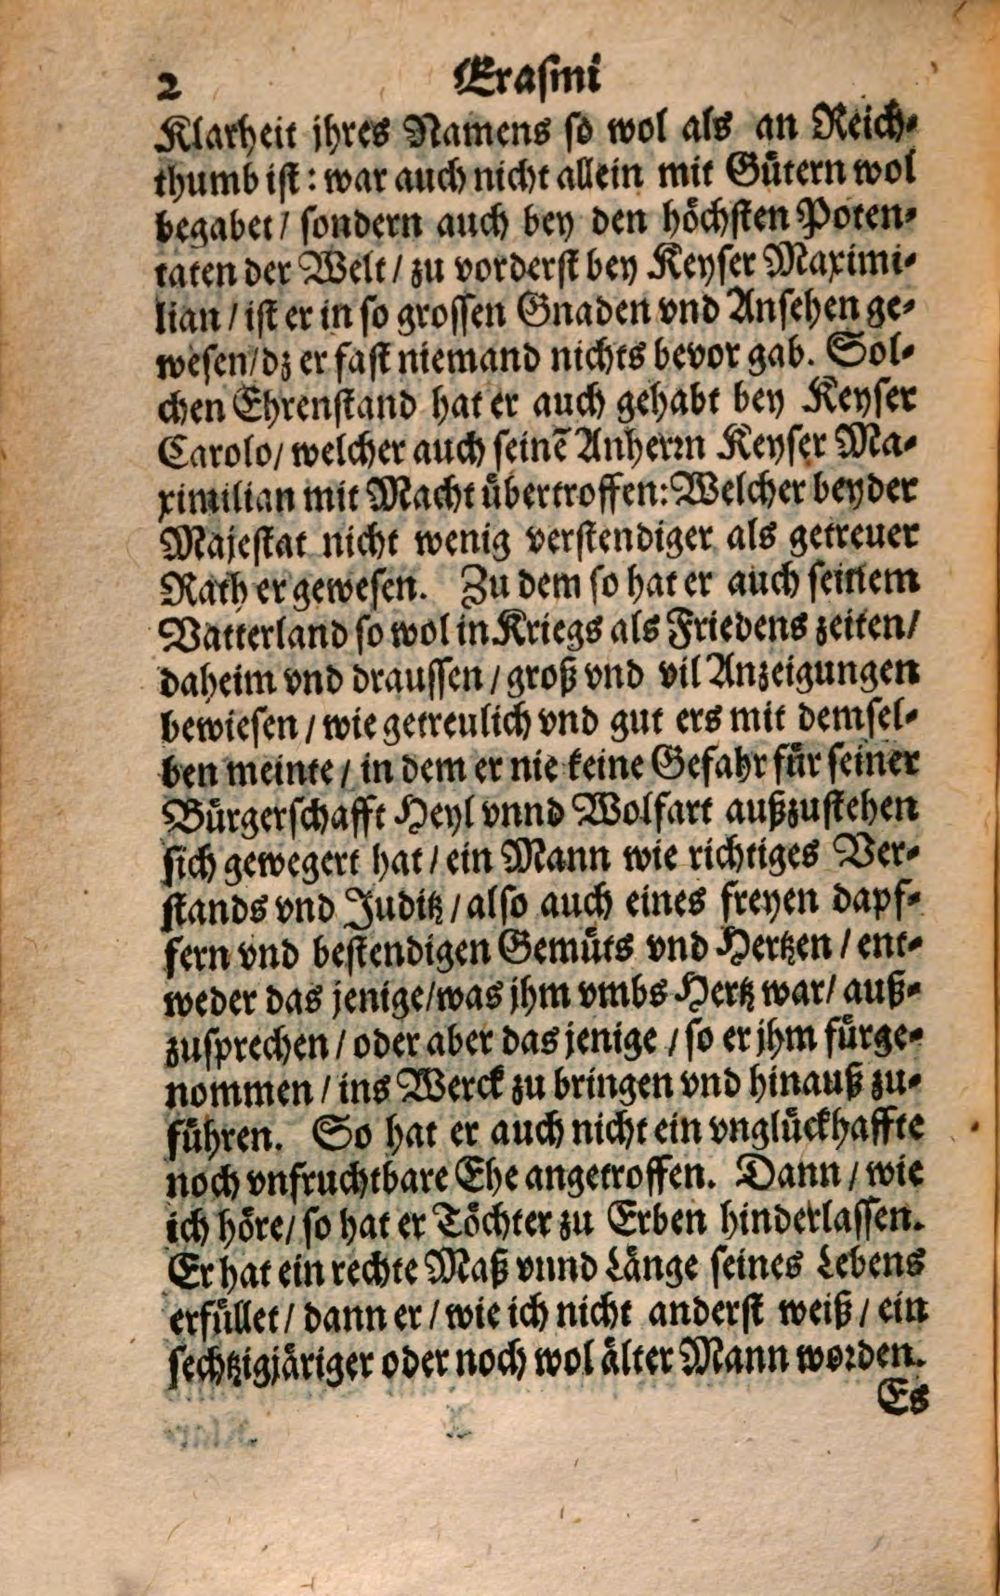 2 Erasmi
Klarheit jhres Namens so wol als an Reich⸗
thumb ist: war auch nicht allein mit Gütern wol
begabet / sondern auch bey den höchsten Poten⸗
taten der Welt / zu vorderst bey Keyser Maximi⸗
lian / ist er in so grossen Gnaden vnd Ansehen ge⸗
wesen / dz er fast niemand nichts bevor gab. Sol⸗
chen Ehrenstand hat er auch gehabt bey Keyser
Carolo / welcher auch seinẽ Anherrn Keyser Ma⸗
ximilian mit Macht übertroffen: Welcher beyder
Majestat nicht wenig verstendiger als getreuer
Rath er gewesen. Zu dem so hat er auch seinem
Vatterland so wol in Kriegs als Friedens zeiten /
daheim vnd draussen / groß vnd vil Anzeigungen
bewiesen / wie getreulich vnd gut ers mit demsel⸗
ben meinte / in dem er nie keine Gefahr für seiner
Bürgerschafft Heyl vnnd Wolfart außzustehen
sich gewegert hat / ein Mann wie richtiges Ver⸗
stands vnd Juditz / also auch eines freyen dapf⸗
fern vnd bestendigen Gemüts vnd Hertzen / ent⸗
weder das jenige / was jhm vmbs Hertz war / auß⸗
zusprechen / oder aber das jenige / so er jhm fürge⸗
nommen / ins Werck zu bringen vnd hinauß zu⸗
führen. So hat er auch nicht ein vnglückhaffte
noch vnfruchtbare Ehe angetroffen. Dann / wie
ich höre / so hat er Töchter zu Erben hinderlassen.
Er hat ein rechte Maß vnnd Länge seines Lebens
erfüllet / dann er / wie ich nicht anderst weiß / ein
sechtzigjäriger oder noch wol älter Mann worden.
Es